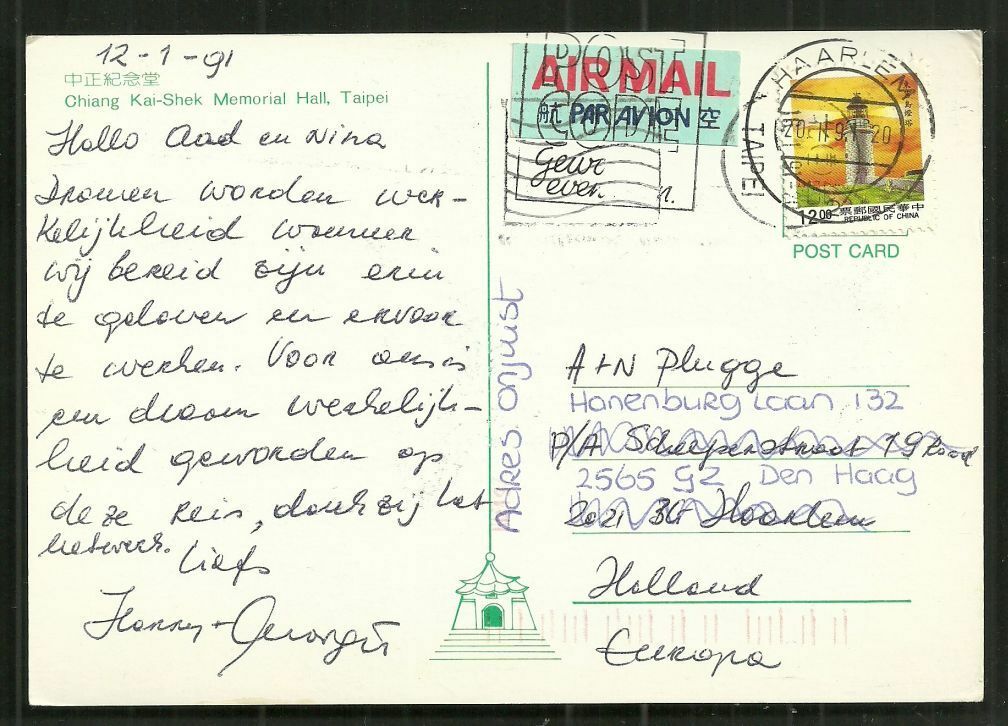 12-1-91
中正紀念堂
Chiang Kai-Shek Memorial Hall, Taipei
Hallo Aad en Nina
Dromen worden wer-
kelijkheid wanneer
wij bereid zijn erin
te geloven en ervoor
te werken. Voor ons is
een droom werkelijk-
heid geworden op
deze reis, dankzij het
netwerk.
liefs
Hanny +
POST
CODE
AIR MAIL
航 PAR AVION 空
HAARLEM
TAIPEI
12.00
票郵國民華中
REPUBLIC OF CHINA
POST CARD
Adres onjuist
A+N Plugge
Hanenburg laan 132
P/A Scheepersstraat 19 Rood
2565 GZ Den Haag
2021 Haarlem
Holland
Europa